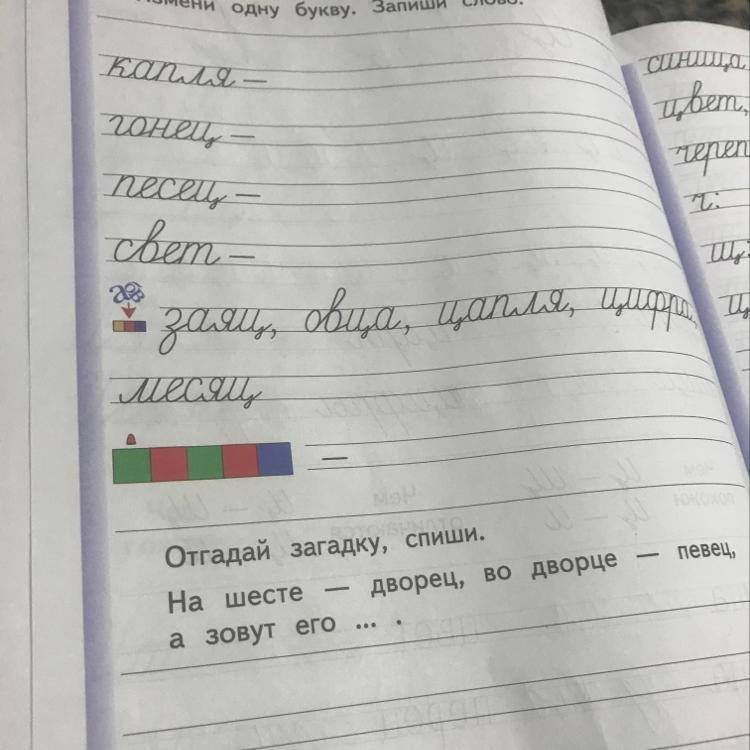 Измени одну букву. Запиши слово.
капля –
гонец –
песец –
свет –
заяц, овца, цапля, цифра,
месяц
–
Отгадай загадку, спиши.
На шесте — дворец, во дворце — певец,
а зовут его ... .
синица
цвет,
череп
ч:
щ: